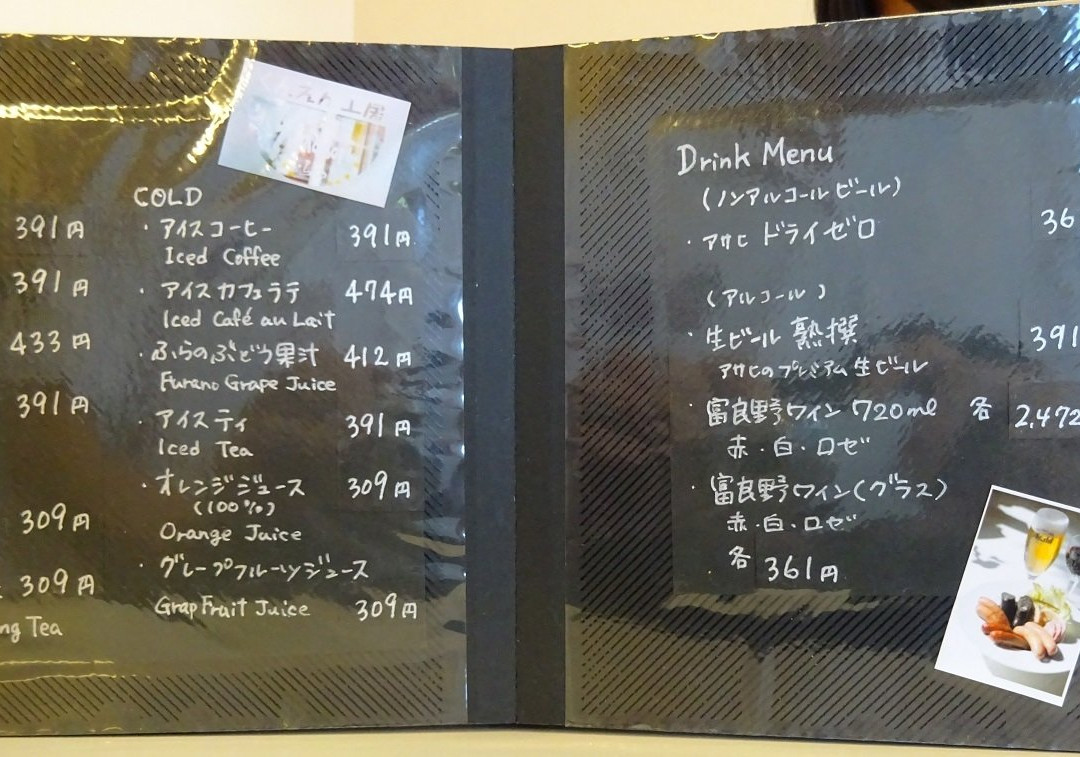 391円
391円
433円
391円
309円
309円
ng Tea
COLD
・アイスコーヒー 391円
Iced Coffee
・アイスカフェラテ 474円
Iced Café au Lait
・ふらのぶどう果汁 412円
Furano Grape Juice
・アイスティ 391円
Iced Tea
・オレンジジュース 309円
(100%)
Orange Juice
・グレープフルーツジュース
GrapFruit Juice 309円
Drink Menu
(ノンアルコールビール)
・アサヒ ドライゼロ 36
(アルコール)
・生ビール 熟撰 391
アサヒのプレミアム生ビール
・富良野ワイン 720ml 各 2,472
赤・白・ロゼ
・富良野ワイン(グラス)
赤・白・ロゼ
各 361円